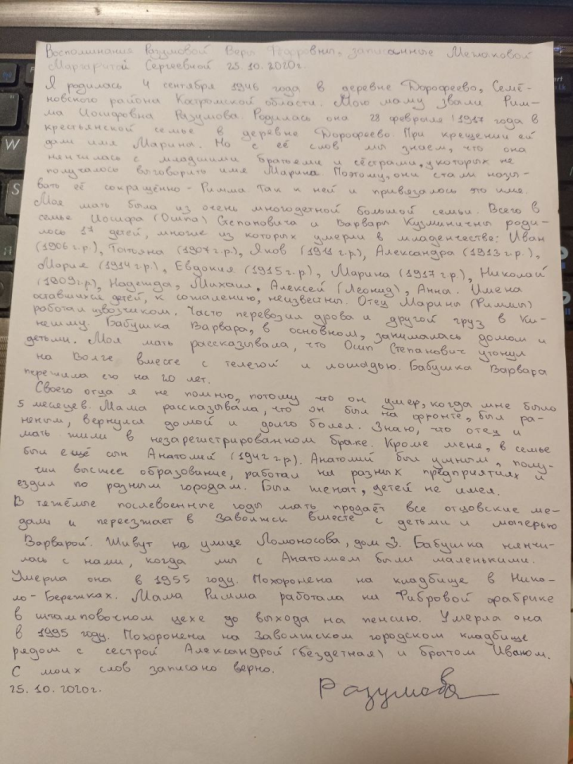 Воспоминания Разумовой Веры Георгиевны, записанные Мешаковой
Маргаритой Сергеевной 25.10.2020г.
Я родилась 4 сентября 1946 года в деревне Дорофеево, Семё-
новского района Костромской области. Мою маму звали Рим-
ма Иосифовна Разумова. Родилась она 28 февраля 1917 года в
крестьянской семье в деревне Дорофеево. При крещении ей
дали имя Марина. Но с её слов мы знаем, что она
нянчилась с младшими братьями и сёстрами, у которых не
получалось выговорить имя Марина. Поэтому они стали назы-
вать её сокращённо - Римма. Так к ней и привязалось то имя.
Моя мать была из очень многодетной большой семьи. Всего в
семье Иосифа (Осипа) Степановича и Варвары Кузьминичны роди-
лось 17 детей, многие из которых умерли в младенчестве: Иван
(1906 г.р.), Татьяна (1907 г.р.), Яков (1911 г.р.), Александра (1913 г.р.),
Мария (1914 г.р.), Евдокия (1915 г.р.), Марина (1917 г.р.), Николай
(1809 г.р.), Надежда, Михаил, Алексей (Леонид), Анна. Имена
оставшихся детей, к сожалению, неизвестны. Отец Марины (Риммы)
работал извозчиком. Часто перевозил дрова и другой груз в Ки-
нешму. Бабушка Варвара, в основном, занималась домом и
детьми. Моя мать рассказывала, что Осип Степанович утонул
на Волге вместе с телегой и лошадью. Бабушка Варвара
пережила его на 20 лет.
Своего отца я не помню, потому что он умер, когда мне было
5 месяцев. Мама рассказывала, что он был на фронте, был ра-
неным, вернулся домой и долго болел. Знаю, что отец и
мать жили в незарегистрированном браке. Кроме меня, в семье
был ещё сын Анатолий (1942 г.р.). Анатолий был умным, полу-
чил высшее образование, работал на разных предприятиях и
ездил по разным городам. Был женат, детей не имел.
В тяжёлые послевоенные годы мать продаёт все отцовские ме-
дали и переезжает в Заволжск вместе с детьми и матерью
Варварой. Живут на улице Ломоносова, дом 3. Бабушка нянчи-
лась с нами, когда мы с Анатолием были маленькими.
Умерла она в 1955 году. Похоронена на кладбище в Нико-
ло-Бережках. Мама Римма работала на Фибровой фабрике
в штамповочном цехе до выхода на пенсию. Умерла она
в 1995 году. Похоронена на Заволжском городском кладбище
рядом с сестрой Александрой (бездетная) и братом Иваном.
С моих слов записано верно.
25.10.2020г. Разумова